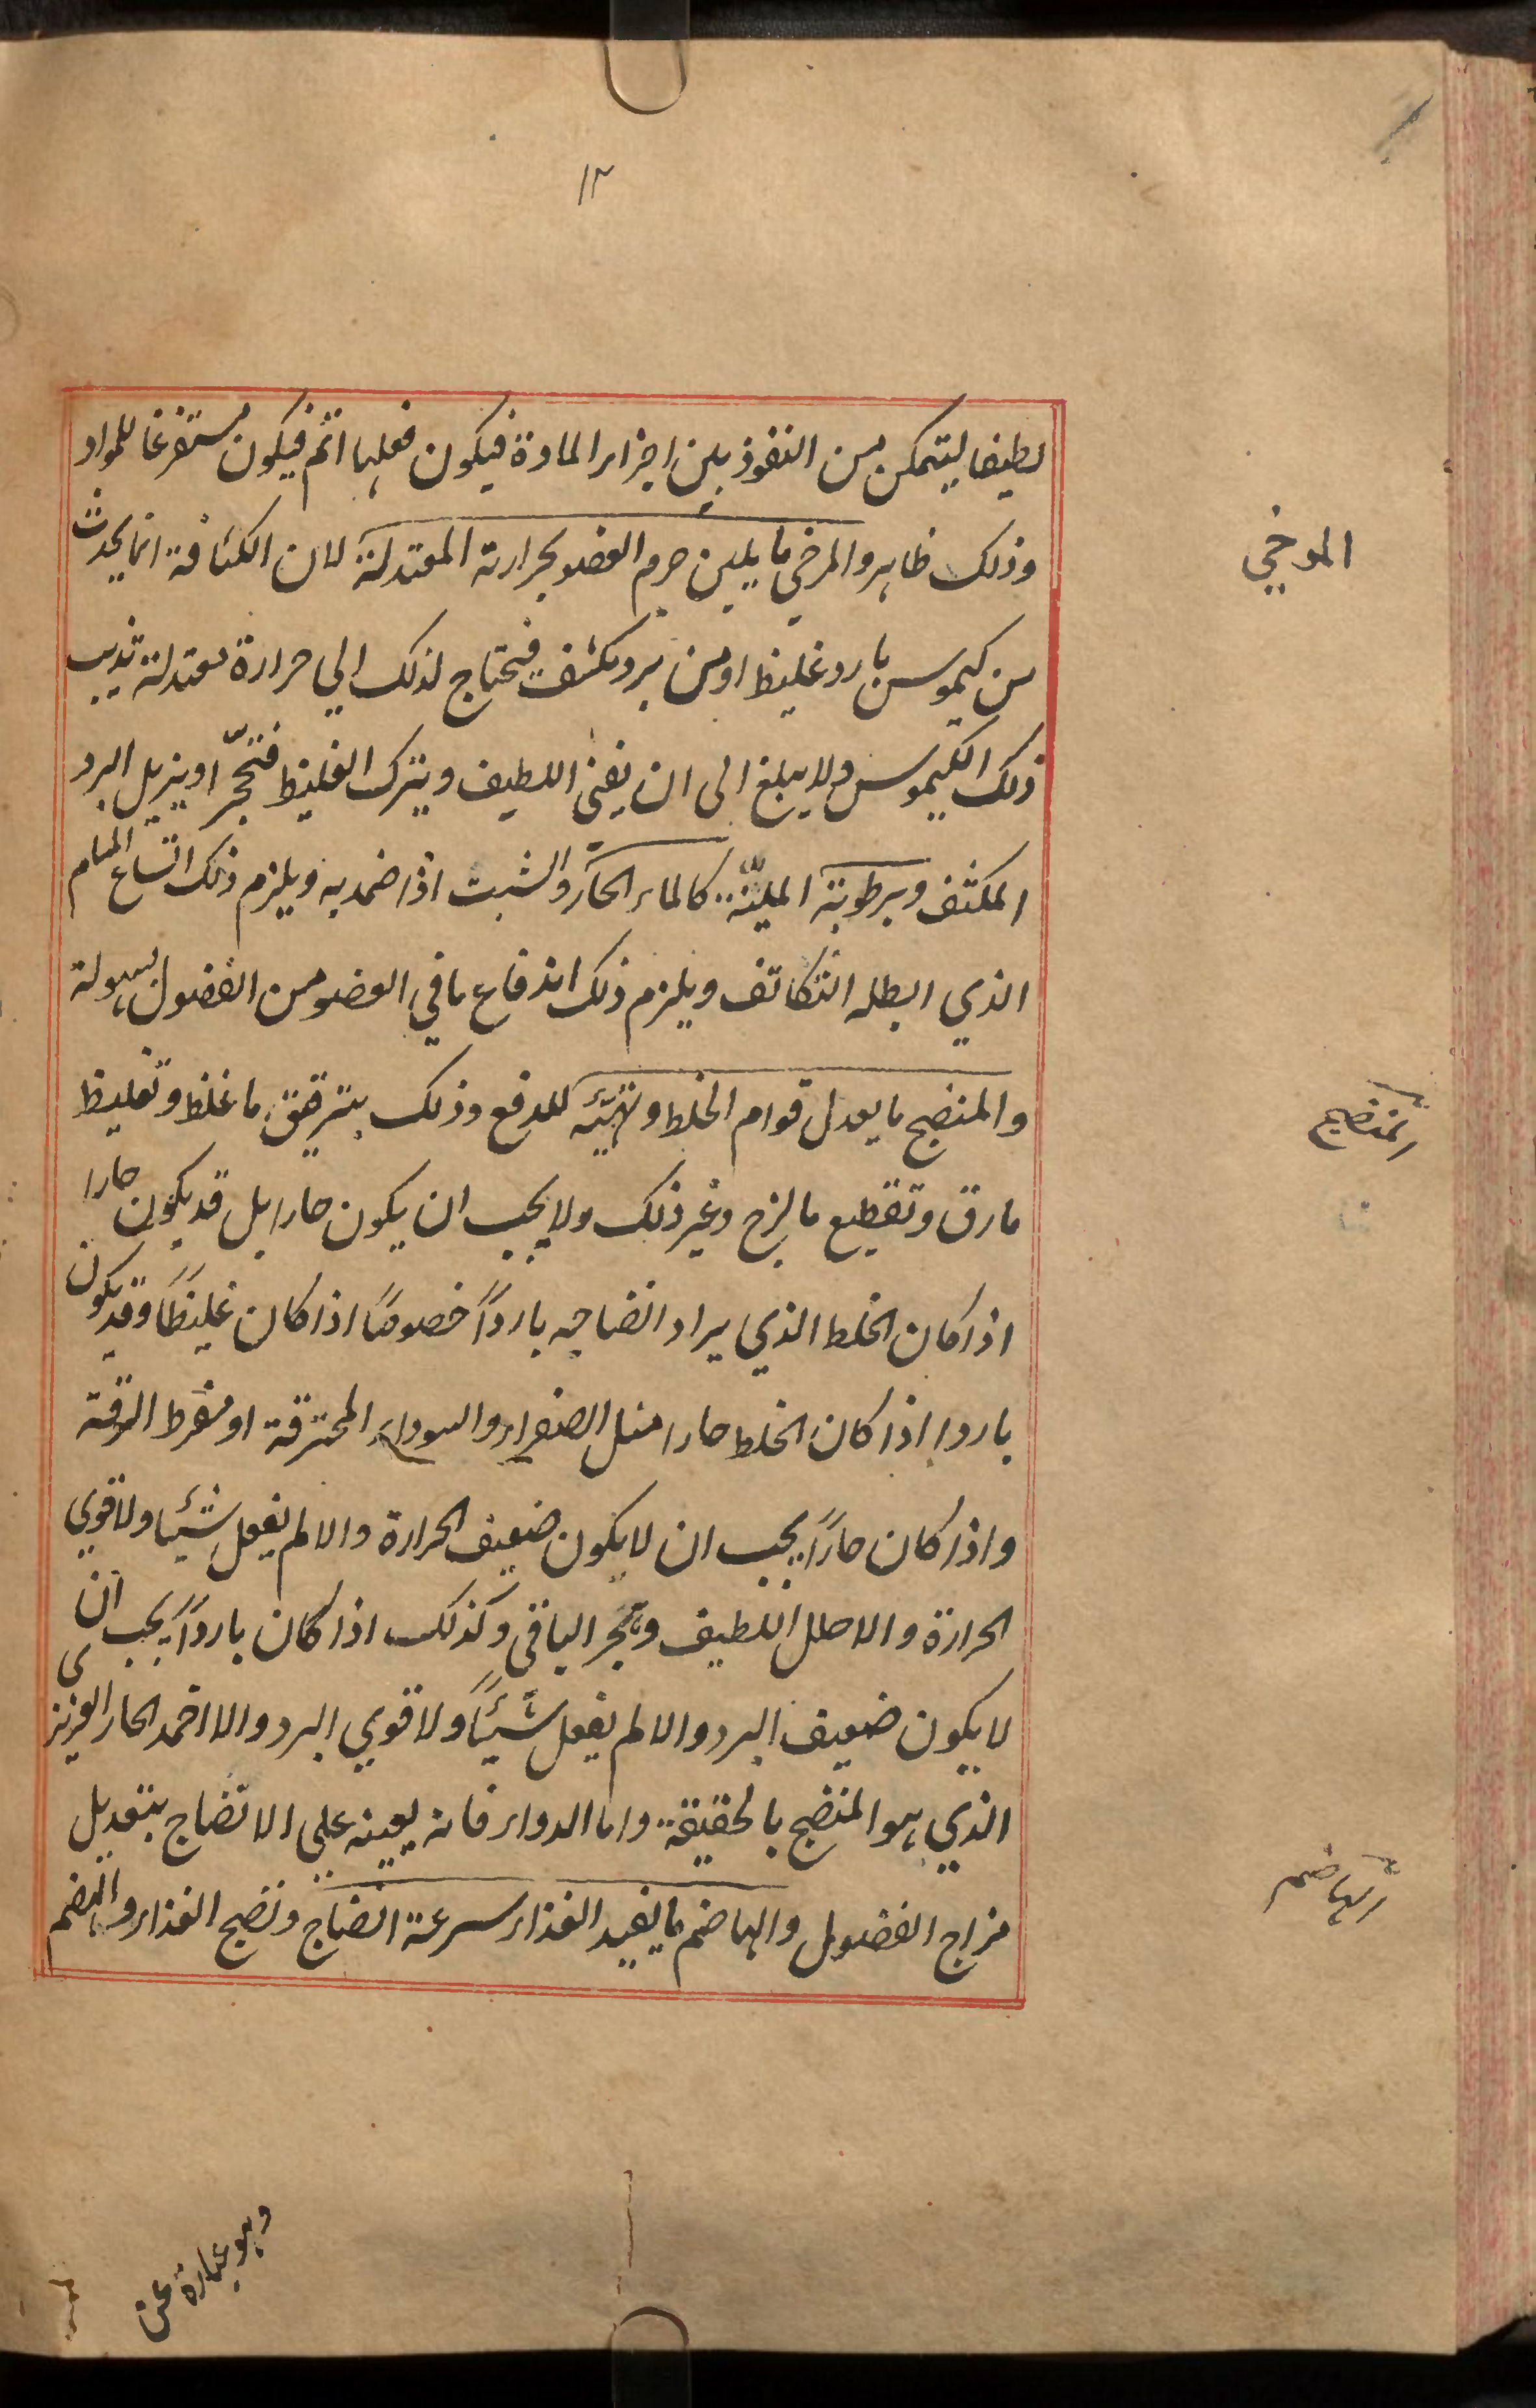 ١٣
لطيفا ليتمكن من النفوذ بين اجزاء المادة فيكون فعلها اتم فيكون مستفرغا للمواد
وذلك ظاهر والمرخي ما يلين جرم العضو بحرارته المعتدلة لان الكثافة انما يحدث
المرخي
من كيموس بارد غليظ او من برد مكثف فيحتاج لذلك الي حرارة معتدلة تذيب
ذلك الكيموس ولا يبلغ الى ان يفنى اللطيف ويترك الغليظ فتحجّر او يزيل البرد
المكثف وبرطوبته الملينّة كالماء الحار والشبت اذا ضمد به ويلزم ذلك اتساع المسام
الذي ابطله التكاثف ويلزم ذلك اندفاع ما في العضو من الفضول بسهولة
والمنضج ما يعدل قوام الخلط ويهيّئه للدفع وذلك بترقيق ما غلظ وتغليظ
المنضج
مارق وتقطيع ما لزج وغير ذلك ولا يجب ان يكون حارا بل قد يكون حارا
اذا كان الخلط الذي يراد انضاجه بارداً خصوصاً اذا كان غليظاً وقد يكون
باردا اذا كان الخلط حارا مثل الصفراء والسوداء المحترقة او مفرط الرقة
واذا كان حاراً يجب ان لا يكون ضعيف الحرارة والا لم يفعل شيئا ولا قوي
الحرارة والا حلل اللطيف وتحجر الباقي وكذلك اذا كان بارداً يجب ان
لا يكون ضعيف البرد والا لم يفعل شيئاً ولا قوي البرد والا اخمد الحار الغريزى
الذي هو المنضج بالحقيقة واما الدواء فانه يعينه علي الانضاج بتعديل
مزاج الفضول والهاضم ما يفيد الغذاء سرعة انضاج ونضج الغذاء والهضم
الهاضم
وهو عبارة عن